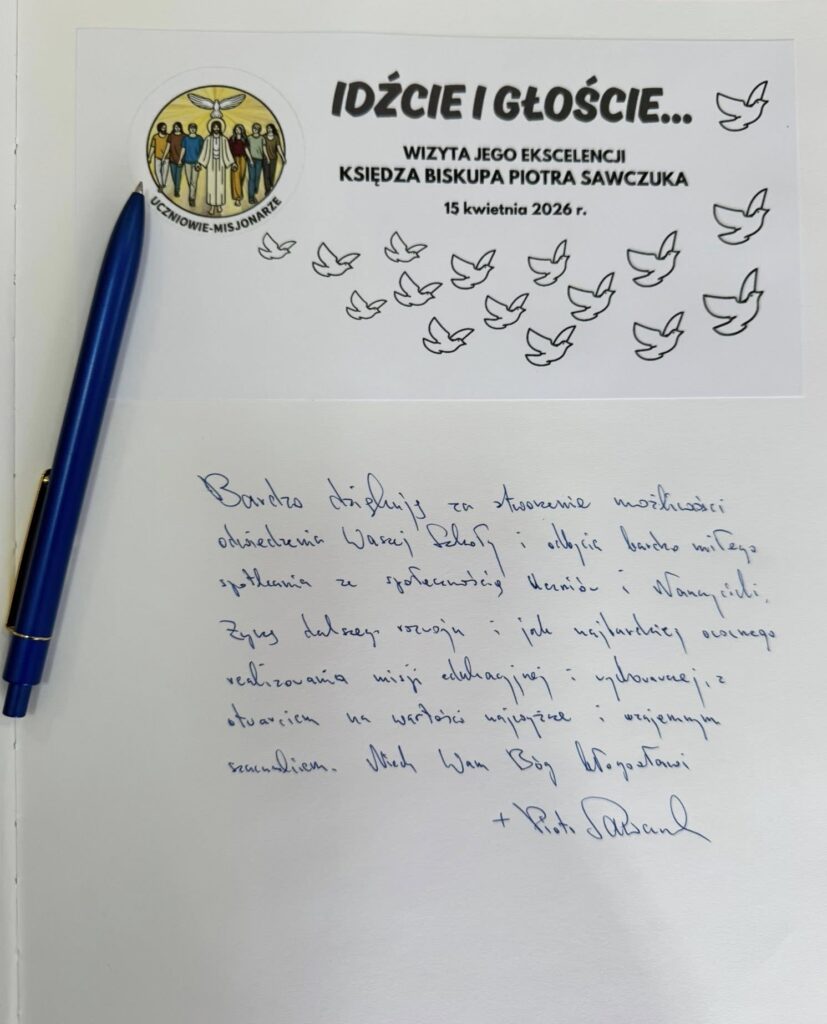 IDŹCIE I GŁOŚCIE...
WIZYTA JEGO EKSCELENCJI
KSIĘDZA BISKUPA PIOTRA SAWCZUKA
15 kwietnia 2026 r.
UCZNIOWIE-MISJONARZE
Bardzo dziękuję za stworzenie możliwości
odwiedzenia Waszej Szkoły i odbycia bardzo miłego
spotkania ze społecznością Uczniów i Nauczycieli.
Życzę dalszego rozwoju i jak najbardziej owocnego
realizowania misji edukacyjnej i wychowawczej, z
otwarciem na wartości najwyższe i wzajemnym
szacunkiem. Niech Wam Bóg błogosławi
+ Piotr Sawczuk